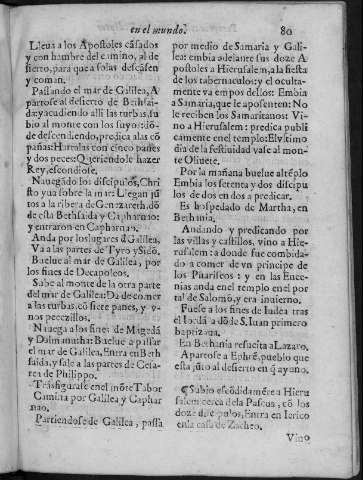 en el mundo. 80
Lleua a los Apostoles cãsados
y con hambre del camino, al de
sierto, para que a solas descãsen
y coman.
Passando el mar de Galilea, A
partose al desierto de Bethsai-
da: y acudiendo alli las turbas, su
bio al monte con los suyos: dõ-
de descendiendo, predica a las cõ
pañas: Hartalas con cinco panes
y dos peces: Queriendole hazer
Rey, escondiose.
Nauegãdo los discipulos, Chri
sto yua sobre la mar: Llegan jũ
tos a la ribera de Genezareth, dõ
de esta Bethsaida y Capharnao:
y entraron en Capharnau.
Anda por los lugares d̃ Galilea,
Va a las partes de Tyro y Sidõ.
Buelue al mar de Galilea, por
los fines de Decapoleos.
Sube al monte de la otra parte
del mar de Galilea: Da de comer
a las turbas, cõ siete panes, y v-
nos pececillos.
Nauega a los fines de Magedã
y Dalmanutha: Buelue a passar
el mar de Galilea, Entra en Beth
saida, y sale a las partes de Cesa-
rea de Philippo.
Trãsfigurase en el mõte Tabor
Camina por Galilea y Caphar
nao.
Partiendose de Galilea, passa
por medio de Samaria y Gali-
lea: embia adelante sus doze A
postoles a Hierusalem, a la fiesta
de los tabernaculos: y el oculta-
mente va empos dellos: Embia
a Samaria, que le aposenten: No
le reciben los Samaritanos: Vi-
no a Hierusalem: predica publi
camente en el templo: El vltimo
dia de la festiuidad vase al mon-
te Oliuete.
Por la mañana buelue al tẽplo
Embia los setenta y dos discipu
los de dos en dos a predicar.
Es hospedado de Martha, en
Bethania.
Andando y predicando por
las villas y castillos, vino a Hie-
rusalem: a donde fue combida-
do a comer de vn principe de
los Phariseos: y en las Ence-
nias anda en el templo en el por
tal de Salomõ, y era inuierno.
Fuese a los fines de Iudea tras
el Iordã a dõ de S. Iuan primero
baptizaua.
En Bethania resucita a Lazaro.
Apartose a Ephrẽ, pueblo que
esta jũto al desierto en q̃ ayuno.
¶ Subio escõdidamẽte a Hieru
salem cerca de la Pascua, cõ los
doze discipulos, Entra en Ierico
en la casa de Zacheo.
Vino